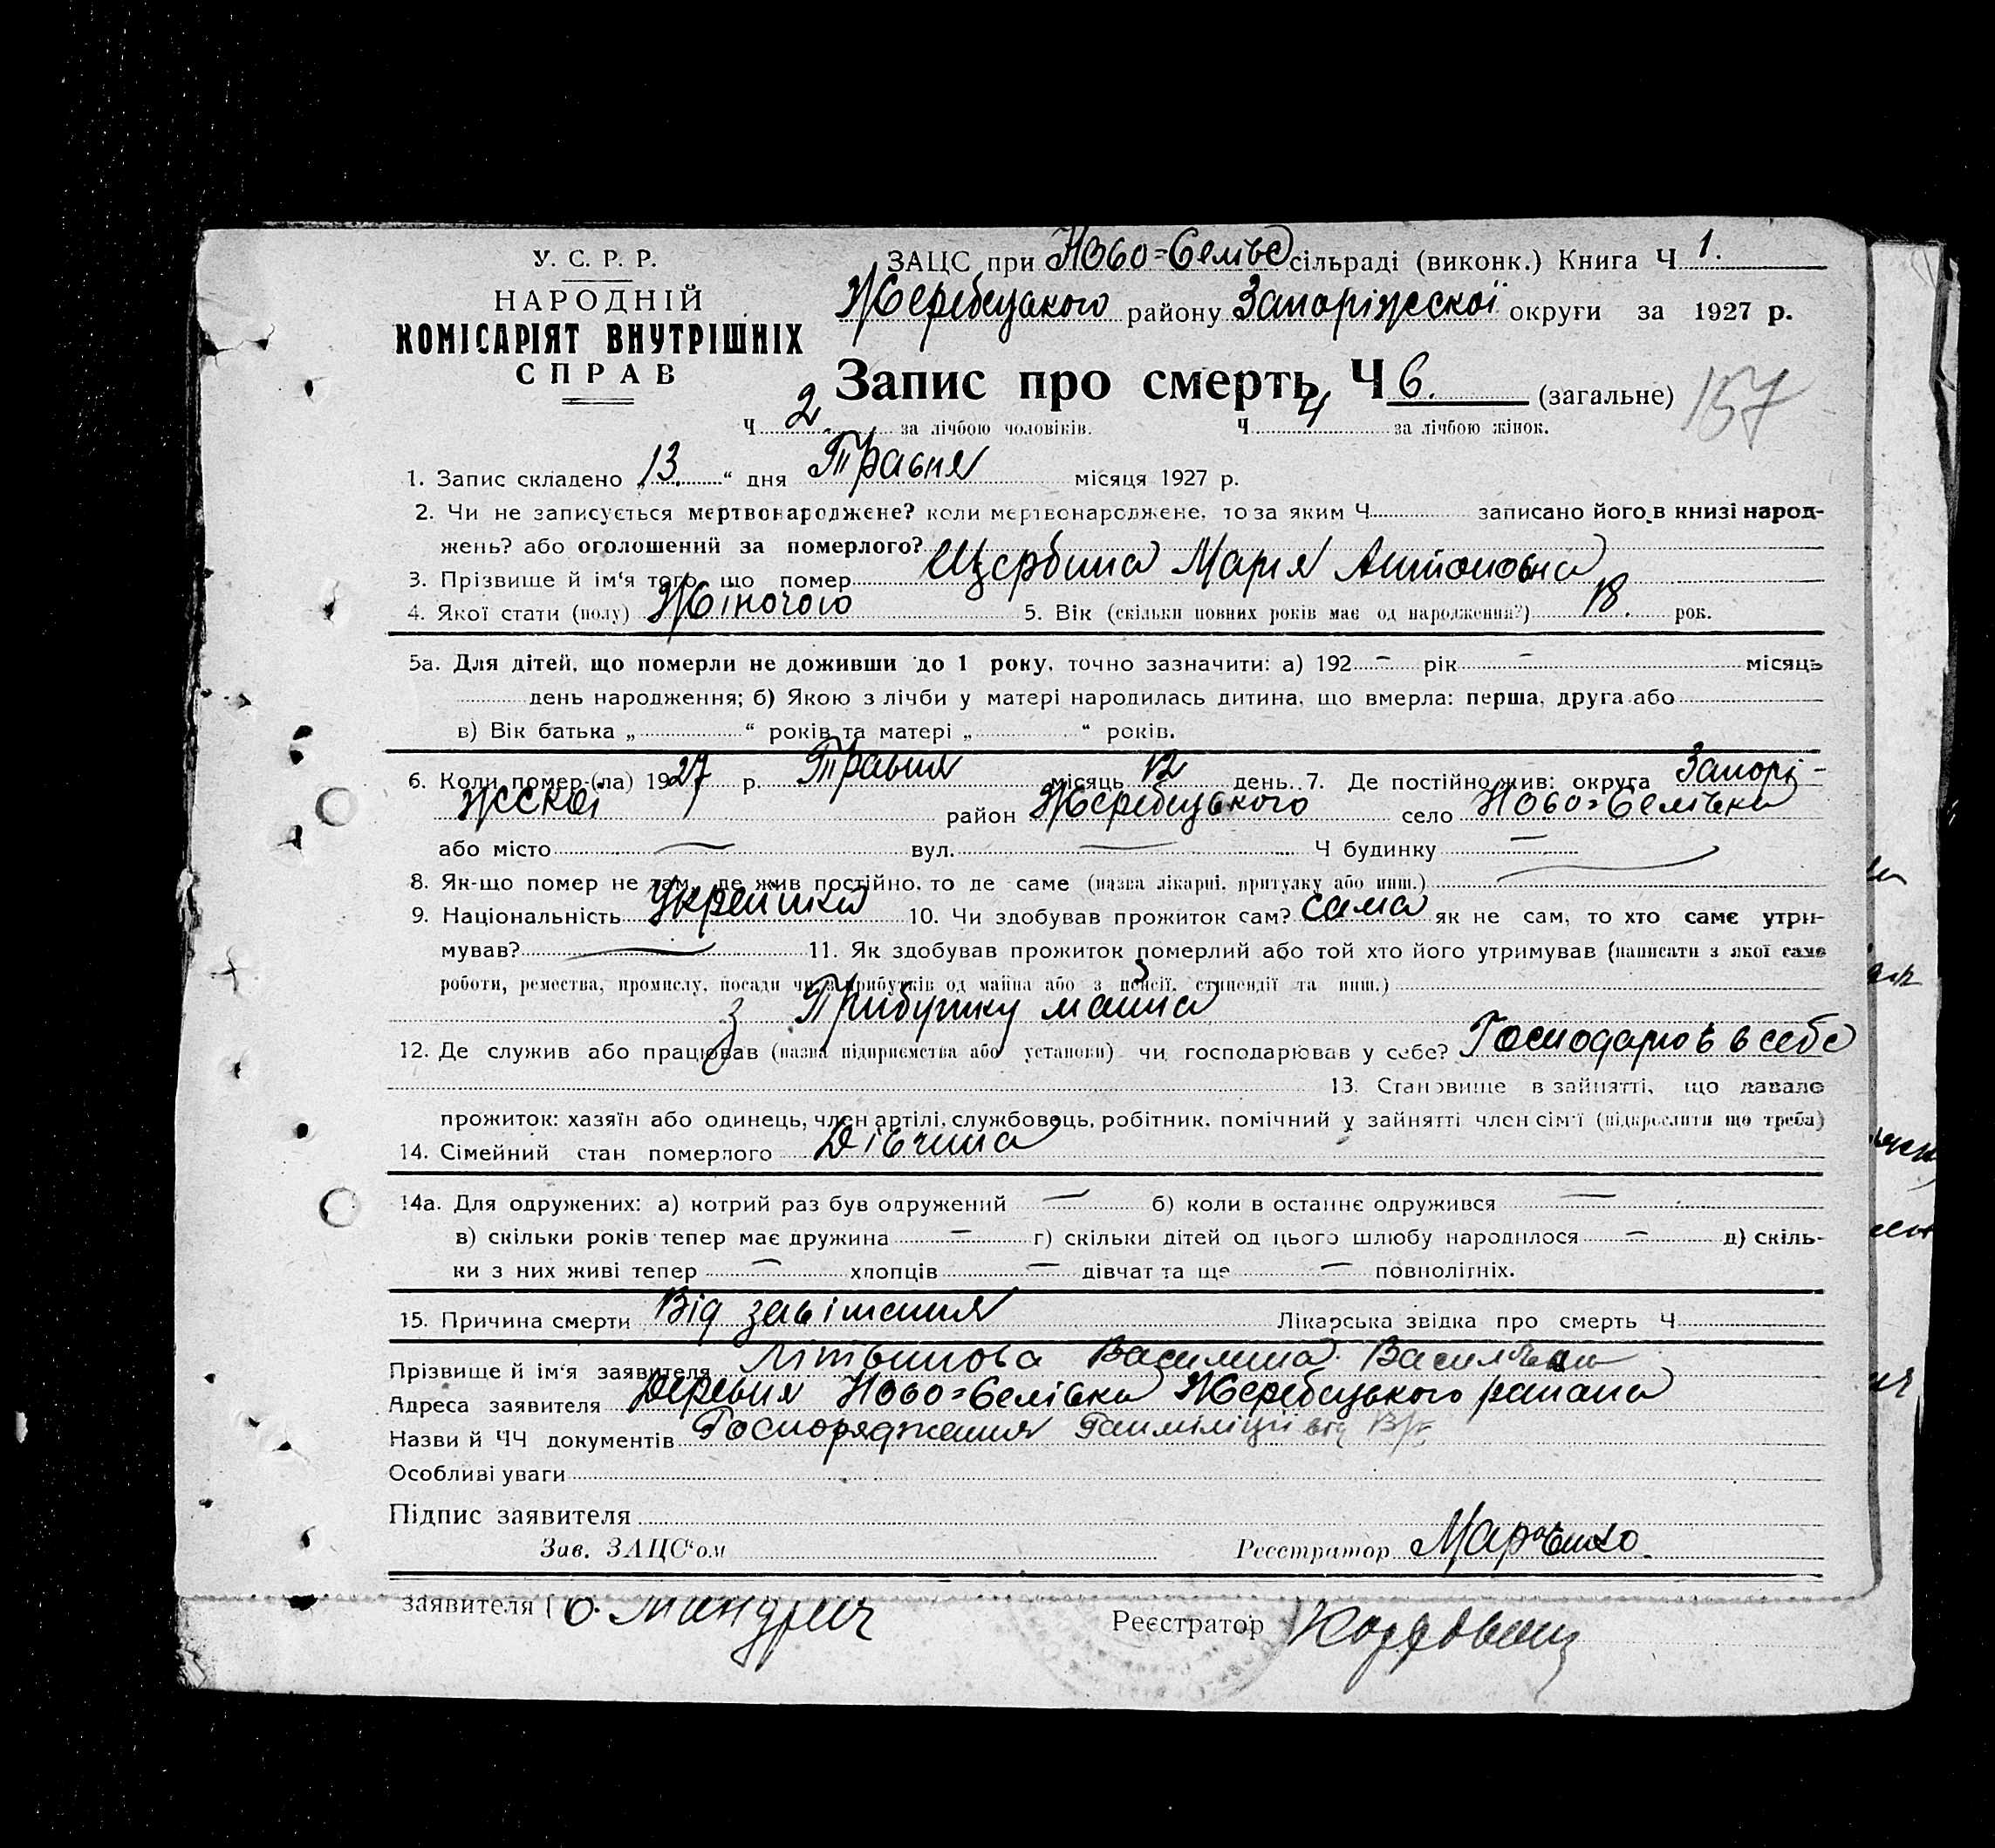 У. С. Р. Р.
НАРОДНІЙ
КОМІСАРІЯТ ВНУТРІШНІХ
СПРАВ
ЗАЦС при Ново=Селівс сільраді (виконк.) Книга Ч 1.
Жеребецького району Запоріжскої округи за 1927 р.
Запис про смерть Ч 6. (загальне) 157
Ч 2 за лічбою чоловіків. Ч 4 за лічбою жінок.
1. Запис складено „13.“ дня Травня місяця 1927 р.
2. Чи не записується мертвонароджене? коли мертвонароджене, то за яким Ч записано його в книзі народ-
жень? або оголошений за померлого?
3. Прізвище й ім'я того, що помер Щербина Марія Антоновна
4. Якої стати (полу) Жіночого 5. Вік (скільки повних років має од народження?) 18. рок.
5а. Для дітей, що померли не доживши до 1 року, точно зазначити: а) 192 – рік – місяць
день народження; б) Якою з лічби у матері народилась дитина, що вмерла: перша, друга або
в) Вік батька „ “ років та матері „ “ років.
6. Коли помер-(ла) 1927 р. Травня місяць 12 день. 7. Де постійно жив: округа Запорі-
жскої район Жеребецького село Ново=Селівка
або місто — вул. — Ч будинку —
8. Як-що помер не там, де жив постійно, то де саме (назва лікарні, притулку або инш.) —
9. Національність Украінка 10. Чи здобував прожиток сам? сама як не сам, то хто саме утри-
мував? — 11. Як здобував прожиток померлий або той хто його утримував (написати з якої саме
роботи, ремества, промислу, посади чи з прибутків од майна або з пенсії, стипендії та инш.)
з Прибутку маина
12. Де служив або працював (назва підприємства або установи) чи господарював у себе? Господарював в себе
13. Становище в зайнятті, що давало
прожиток: хазяїн або одинець, член артілі, службовець, робітник, помічний у зайнятті член сім'ї (підкреслити що треба)
14. Сімейний стан померлого Дівчина
14а. Для одружених: а) котрий раз був одружений — б) коли в останнє одружився —
в) скільки років тепер має дружина – г) скільки дітей од цього шлюбу народилося – д) скіль-
ки з них живі тепер – хлопців – дівчат та ще – повнолітніх.
15. Причина смерти Від завішання Лікарська звідка про смерть Ч
Прізвище й ім'я заявителя Літвинова Василина
Адреса заявителя Деревня Ново=Селівка Жеребецького раиана
Назви й ЧЧ документів
Особливі уваги
Підпис заявителя
Зав. ЗАЦС'ом Реєстратор Марченко.
заявителя
Реєстратор